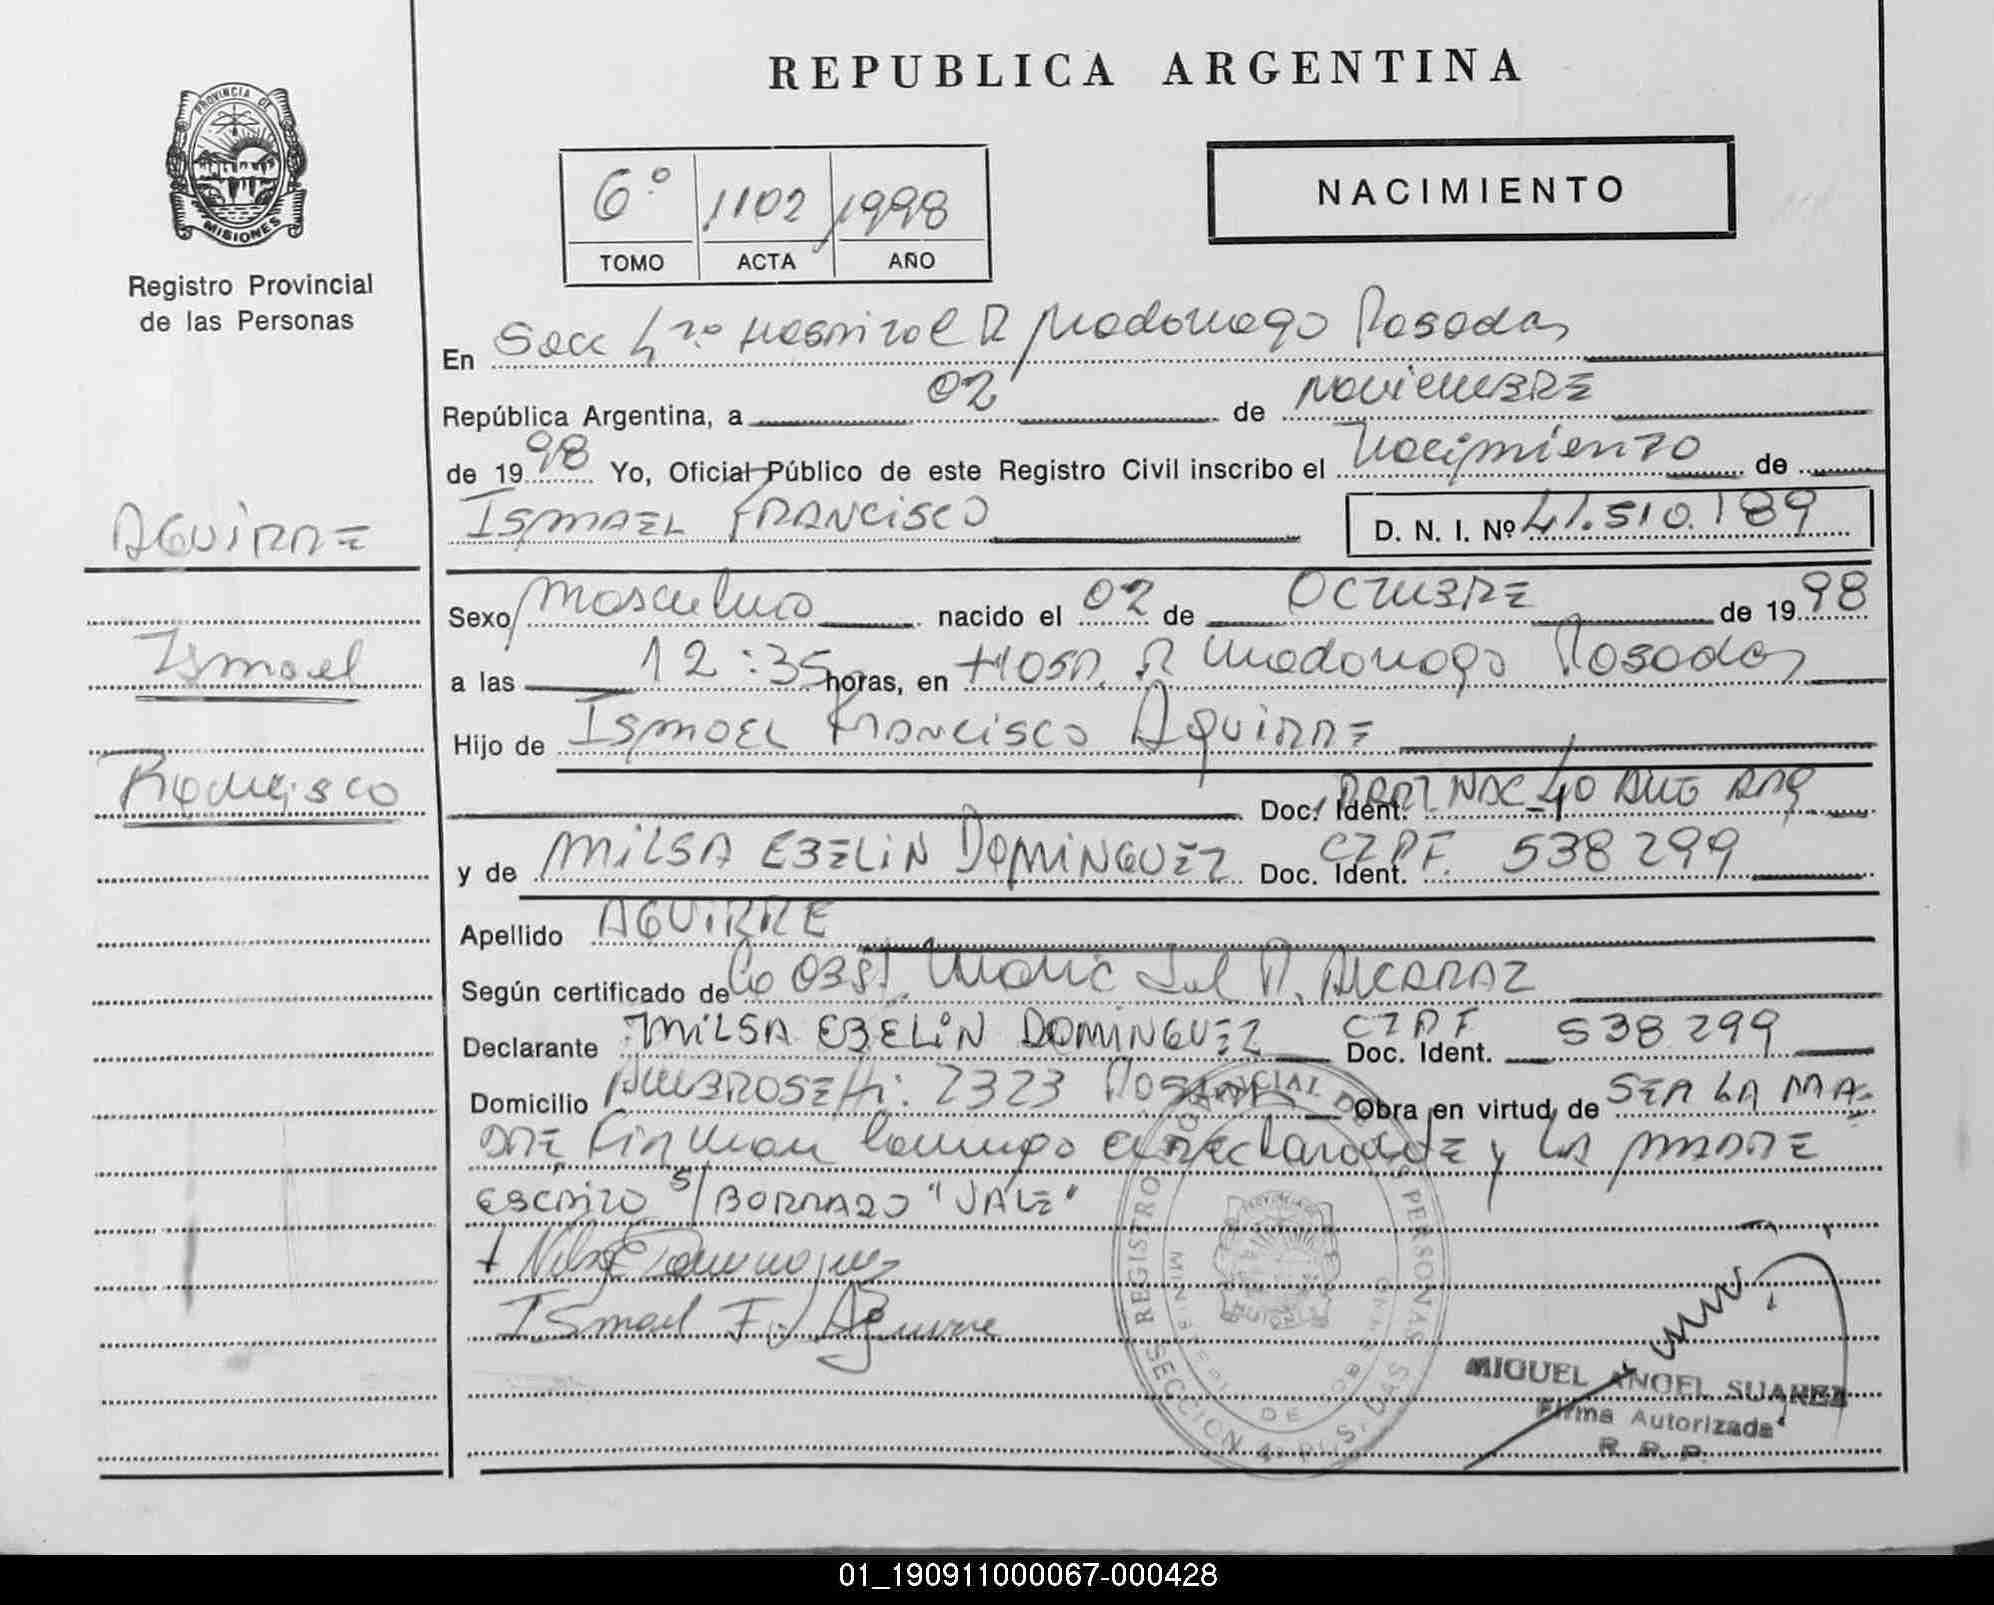 REPUBLICA ARGENTINA
PROVINCIA DE
MISIONES
Registro Provincial
de las Personas
6º 1102 1998
TOMO ACTA AÑO
NACIMIENTO
En Secc 4ta Hospital R Madariaga Posadas
República Argentina, a 02 de NOVIEMBRE
de 1998 Yo, Oficial Público de este Registro Civil inscribo el Nacimiento de
ISMAEL FRANCISCO D. N. I. Nº 41.510.189
AGUIRRE
Ismael
Francisco
Sexo Masculino nacido el 02 de OCTUBRE de 1998
a las 12:35 horas, en HOSP. R Madariaga Posadas
Hijo de ISMAEL FRANCISCO AGUIRRE
Doc. Ident. PART NAC 40 ARG
y de MILSA EBELIN DOMINGUEZ Doc. Ident. CIPF. 538299
Apellido AGUIRRE
Según certificado de OBST. R. ALCARAZ
Declarante MILSA EBELIN DOMINGUEZ Doc. Ident. CIPF 538299
Domicilio AMBROSETTI: 2323 POSADAS Obra en virtud de SER LA MA-
DRE Firman conmigo el declarante y LA MADRE
ESCRITO S/ BORRADO "VALE"
Ismael F. Aguirre
REGISTRO PROVINCIAL DE LAS PERSONAS
SECCION 4
MIGUEL ANGEL SUAREZ
Firma Autorizada
R. R. P.
01_190911000067-000428